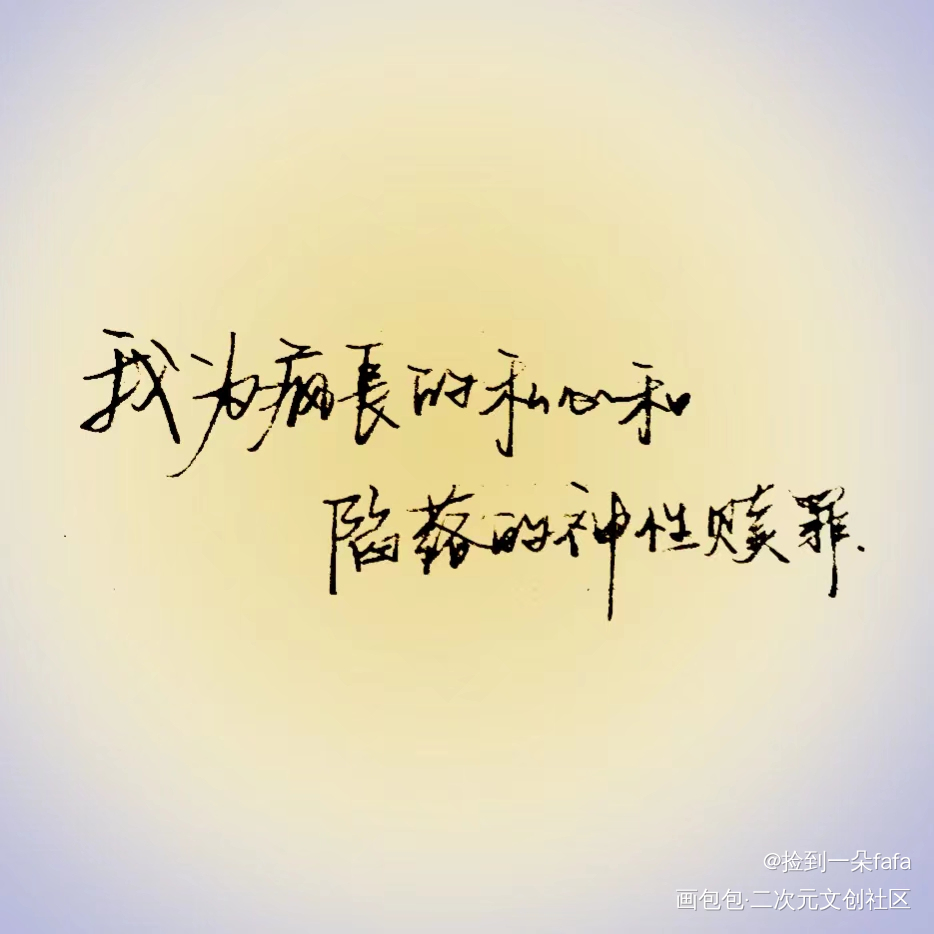 我为病長的私心和
陷落的神性赎罪.
@捡到一朵fafa
画包包·二次元文创社区